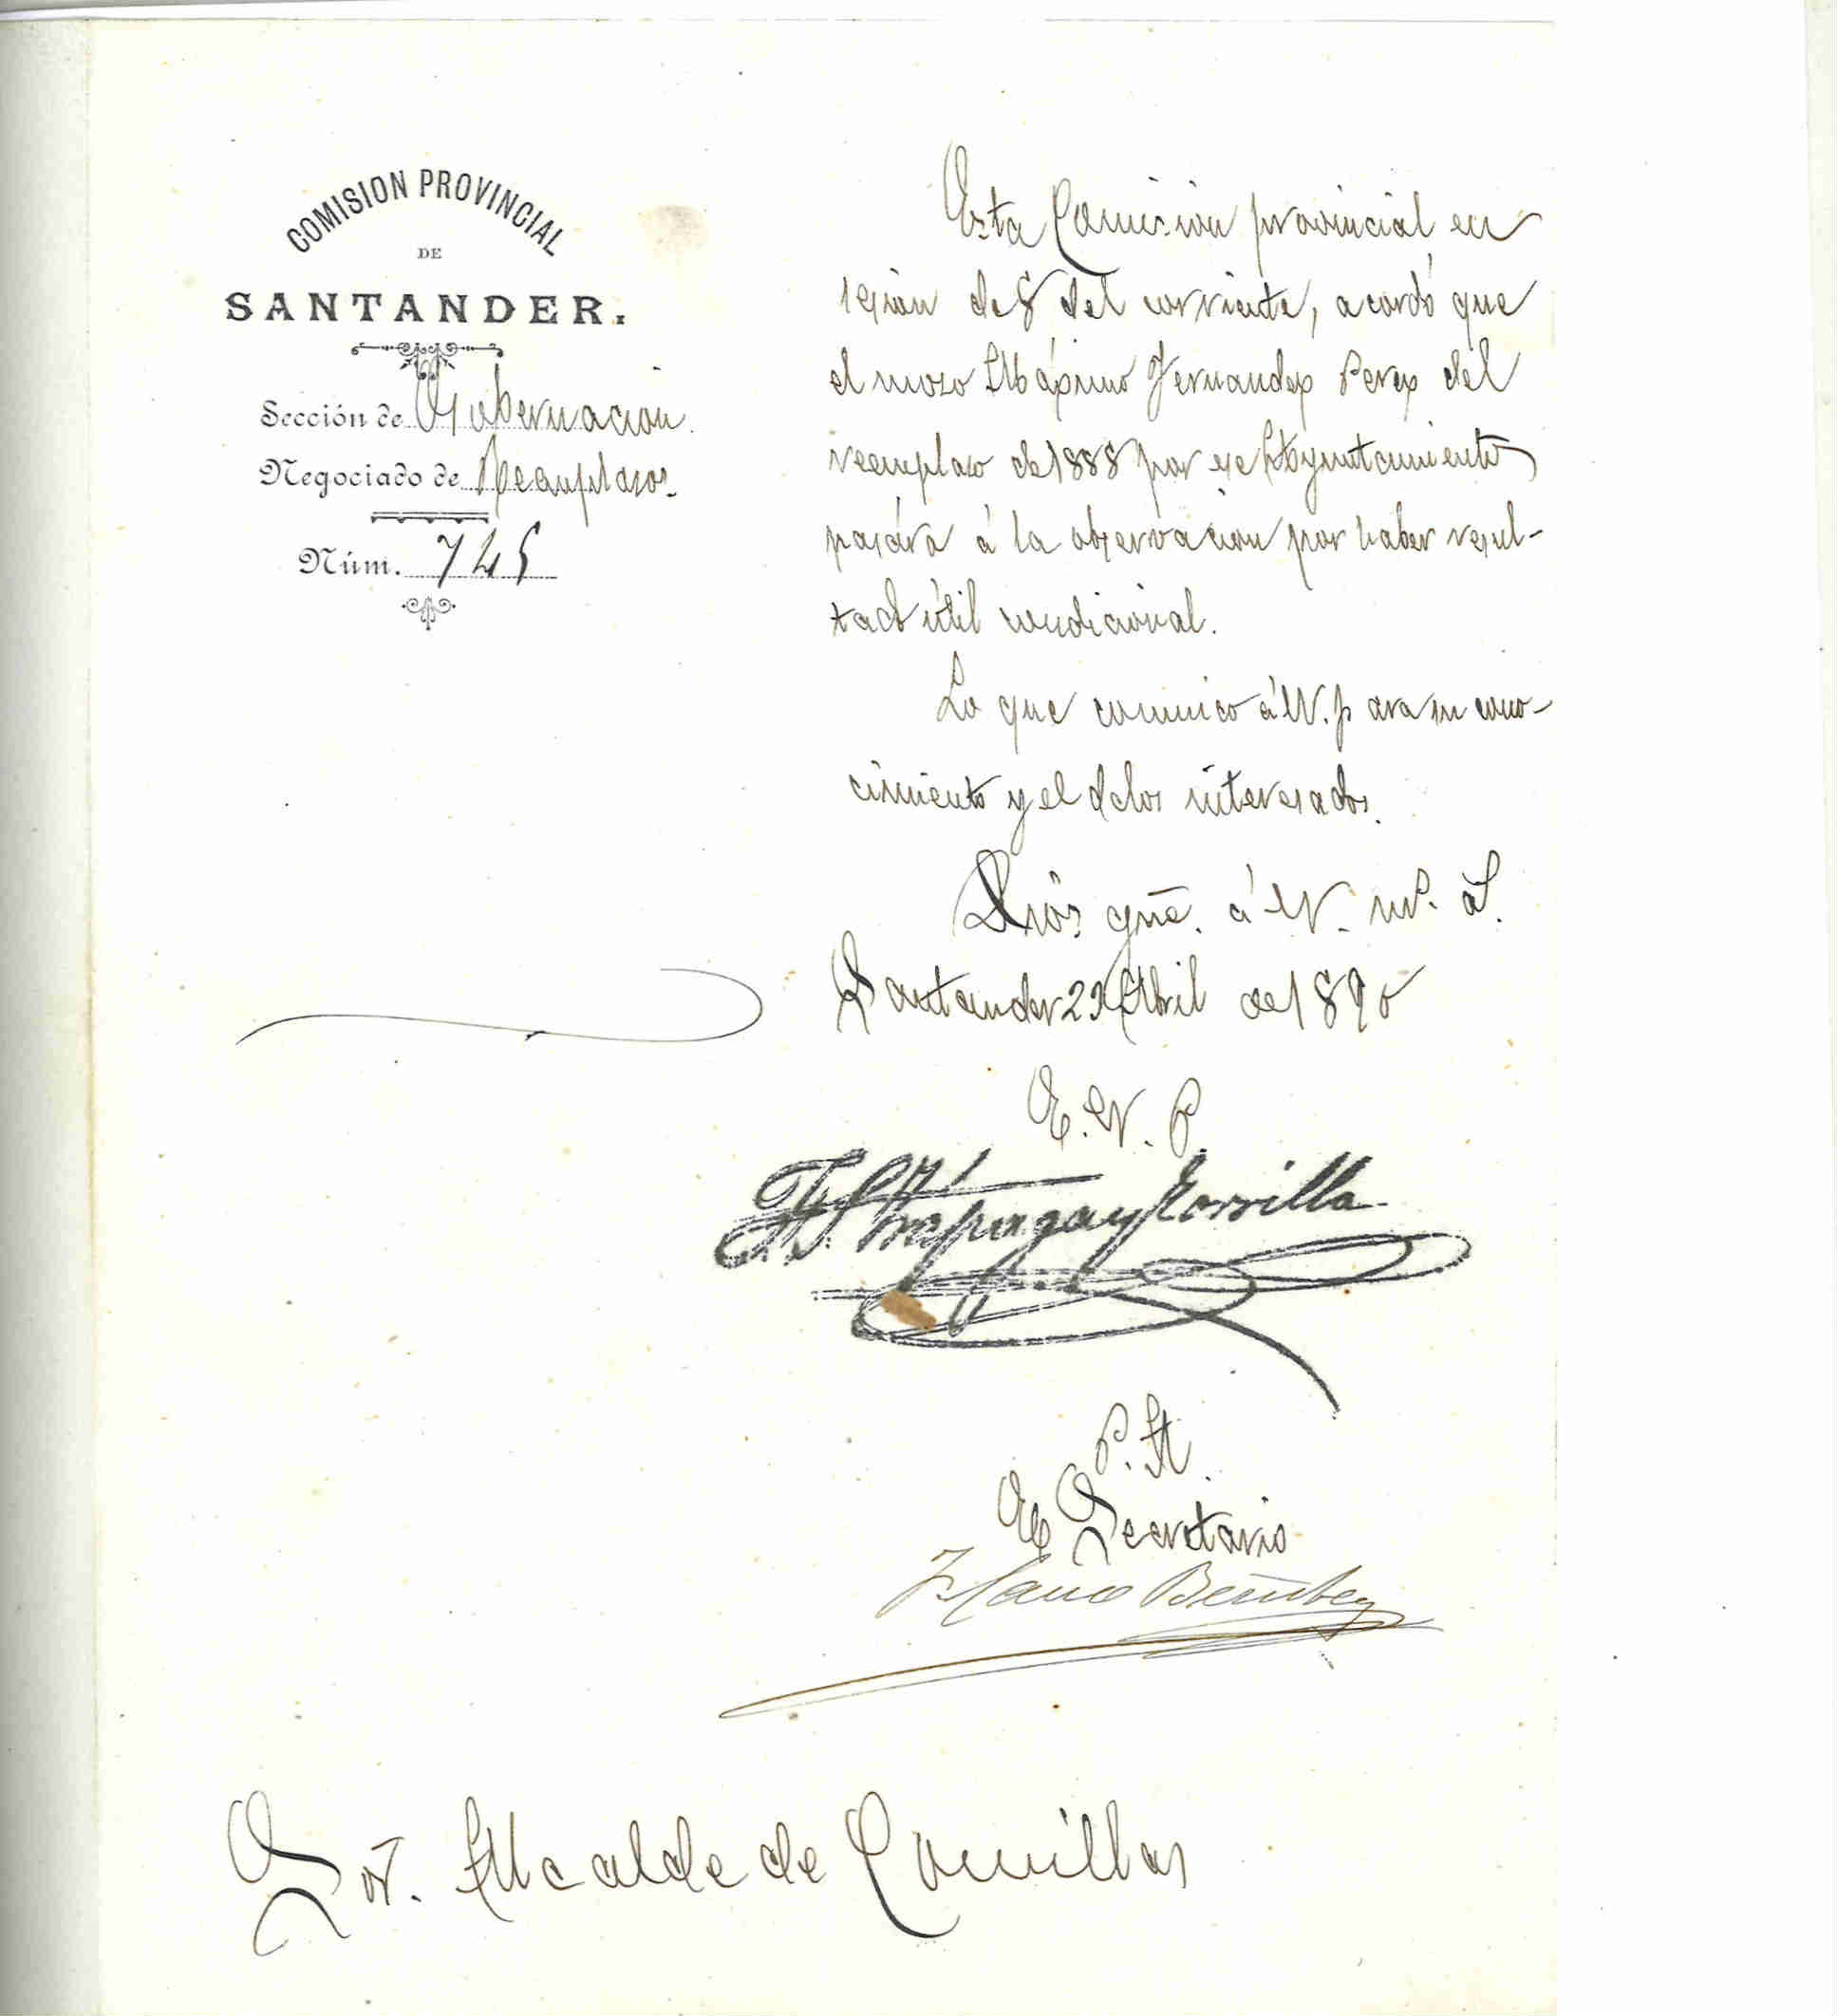 COMISION PROVINCIAL
DE
SANTANDER.
Sección de Gobernacion
Negociado de Reemplazos.
Núm. 745
Esta Comision provincial en
sesion de 8 del corriente, acordó que
el mozo Máximo Fernandez Perez del
reemplazo de 1888 por ese Ayuntamiento
pasára á la observacion por haber resul-
tado útil condicional.
Lo que comunico á V. para su cono-
cimiento y el de los interesados.
Dios gũe. á V. m.s a.s
Santander 22 Abril de 1890
E. V. P.
y Zorrilla
P. A.
El Secretario
Sor. Alcalde de Comillas